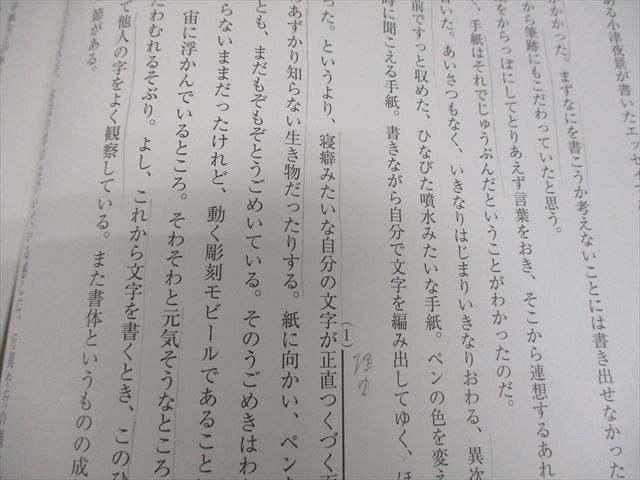 ある小津夜景が書いたエッセイ
かかった。まずなにを書こうか考えないことには書き出せなかった
から筆跡にもこだわっていたと思う。
をからっぽにしてとりあえず言葉をおき、そこから連想するあれ
て、手紙はそれでじゅうぶんだということがわかったのだ。
いた。あいさつもなく、いきなりはじまりいきなりおわる、異次
前ですっと収めた、ひなびた噴水みたいな手紙。ペンの色を変え
時に聞こえる手紙。書きながら自分で文字を編み出してゆく、ほ
(1)
理由
った。というより、寝癖みたいな自分の文字が正直つくづく面
らあずかり知らない生き物だったりする。紙に向かい、ペン
とも、まだもぞもぞとうごめいている。そのうごめきはわ
らないままだったけれど、動く彫刻モビールであること
宙に浮かんでいるところ。そわそわと元気そうなところ
たわむれるそぶり。よし、これから文字を書くとき、このひ
て他人の字をよく観察している。また書体というものの成
節がある。